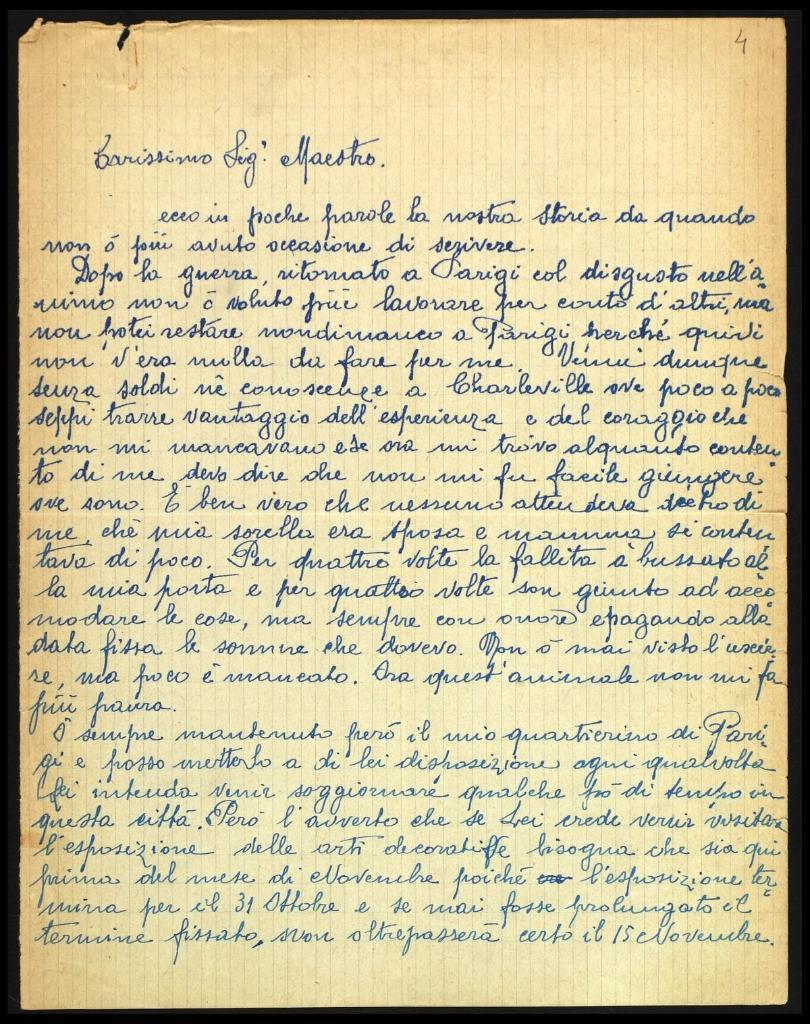 4
Carissimo Sig.r Maestro.
ecco in poche parole la nostra storia da quando
non ó più avuto occasione di scrivere.
Dopo la guerra, ritornato a Parigi col disgusto nell'a=
nimo non ó voluto più lavorare per conto d'altri, ma
non potei restare nondimanco a Parigi perché quivi
non v'era nulla da fare per me. Venni dunque
senza soldi nè conoscenze a Charleville ove poco a poco
seppi trarre vantaggio dell'esperienza e del coraggio che
non mi mancavano e se ora mi trovo alquanto conten=
to di me devo dire che non mi fu facile giungere
ove sono. È ben vero che nessuno attendeva dietro di
me, chè mia sorella era sposa e mamma si conten
tava di poco. Per quattro volte la fallita à bussato al
la mia porta e per quattro volte son giunto ad acco
modare le cose, ma sempre con onore e pagando alla
data fissa le somme che dovevo. Non ó mai visto l'uscie=
re, ma poco è mancato. Ora quest'animale non mi fa
più paura.
Ó sempre mantenuto peró il mio quartierino di Pari=
gi e posso metterlo a di lei disposizione ogni qualvolta
Lei intenda venir soggiornare qualche pó di tempo in
questa città. Peró l'avverto che se Lei crede venir visitare
l'esposizione delle arti decorative bisogna che sia qui
prima del mese di Novembre poiché l'esposizione ter=
mina per il 31 Ottobre e se mai fosse prolungato il
termine fissato, non oltrepasserà certo il 15 Novembre.